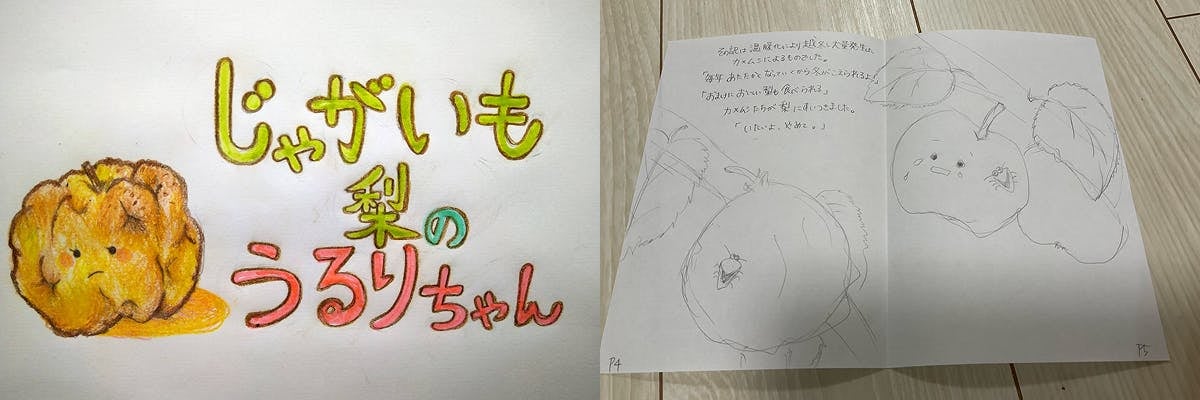 じゃがいも
梨の
うるりちゃん
その訳は温暖化により越冬し大量発生した
カメムシによるものでした。
「毎年あたたかくなっていくから冬がこえられるよ!」
「おまけにおいしい梨も食べられる」
カメムシたちが梨にすいつきました。
「いたいよ、やめて。」
P4
P5